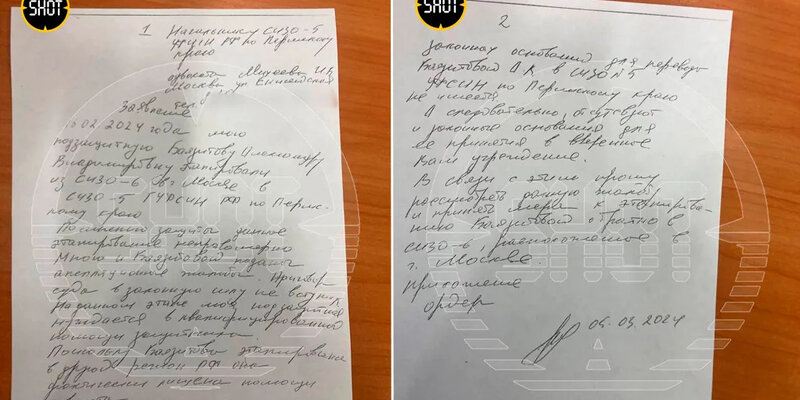 SHOT
1 Начальнику СИЗО-5
ГУФСИН РФ по Пермскому
краю
адвоката Михеева И.К
Москва ул Енисейская
тел.
Заявление
16.02 2024 года мою
подзащитную Баязитову Александру
Владимировну этапировали
из СИЗО-6 в г Москве в
СИЗО-5 ГУФСИН РФ по Перм-
скому краю
По мнению защиты данное
этапирование неправомерно
Мною и Баязитовой поданы
апелляционные жалобы. Приговор
суда в законную силу не вступил
На данном этапе моя подзащитная
нуждается в квалифицированной
помощи защитника
Поскольку Баязитова этапирована
в другой регион РФ она
фактически лишена помощи
SHOT
2
законных оснований для перевода
Баязитовой А.В. в СИЗО №5
ГУФСИН по Пермскому краю
не имеется
А следовательно, отсутствуют
и законные основания для
ее принятия в вверенное
Вам учреждение.
В связи с этим прошу
рассмотреть данную жалобу
и принять меры к этапирова-
нию Баязитовой обратно в
СИЗО-6, расположенное в
г. Москве.
Приложение
ордер
05.03.2024
SHOT